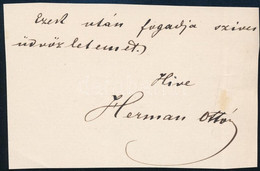 Ezek után fogadja szives
üdvözletemet.
Hive
Herman Ottó